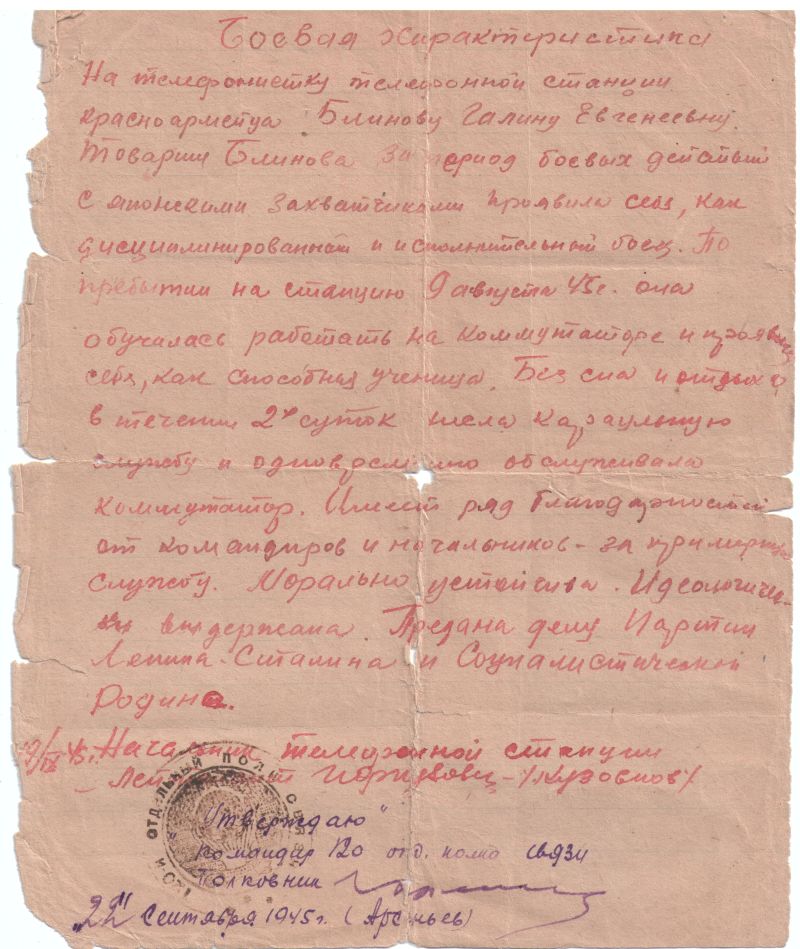 Боевая характеристика
На телефонистку телефонной станции
красноармейца Блинову Галину Евгенеевну.
Товарищ Блинова за период боевых действий
с японскими захватчиками проявила себя, как
дисциплинированный и исполнительный боец. По
прибытии на станцию 9 августа 45 г. она
обучилась работать на коммутаторе и проявила
себя, как способная ученица. Без сна и отдыха
в течении 2х суток несла караульную
службу и одновременно обслуживала
коммутатор. Имеет ряд благодарностей
от командиров и начальников - за примерную
службу. Морально устойчива. Идеологичес-
ки выдержана. Предана делу Партии
Ленина-Сталина и Социалистической
Родине.
19/IX 45. Начальник телефонной станции
Лейтенант /Кузовков/
ОТДЕЛЬНЫЙ ПОЛК СВЯЗИ
"Утверждаю"
Командир 120 отд. полка связи
Полковник
"22" Сентября 1945 г. (Арсеньев)